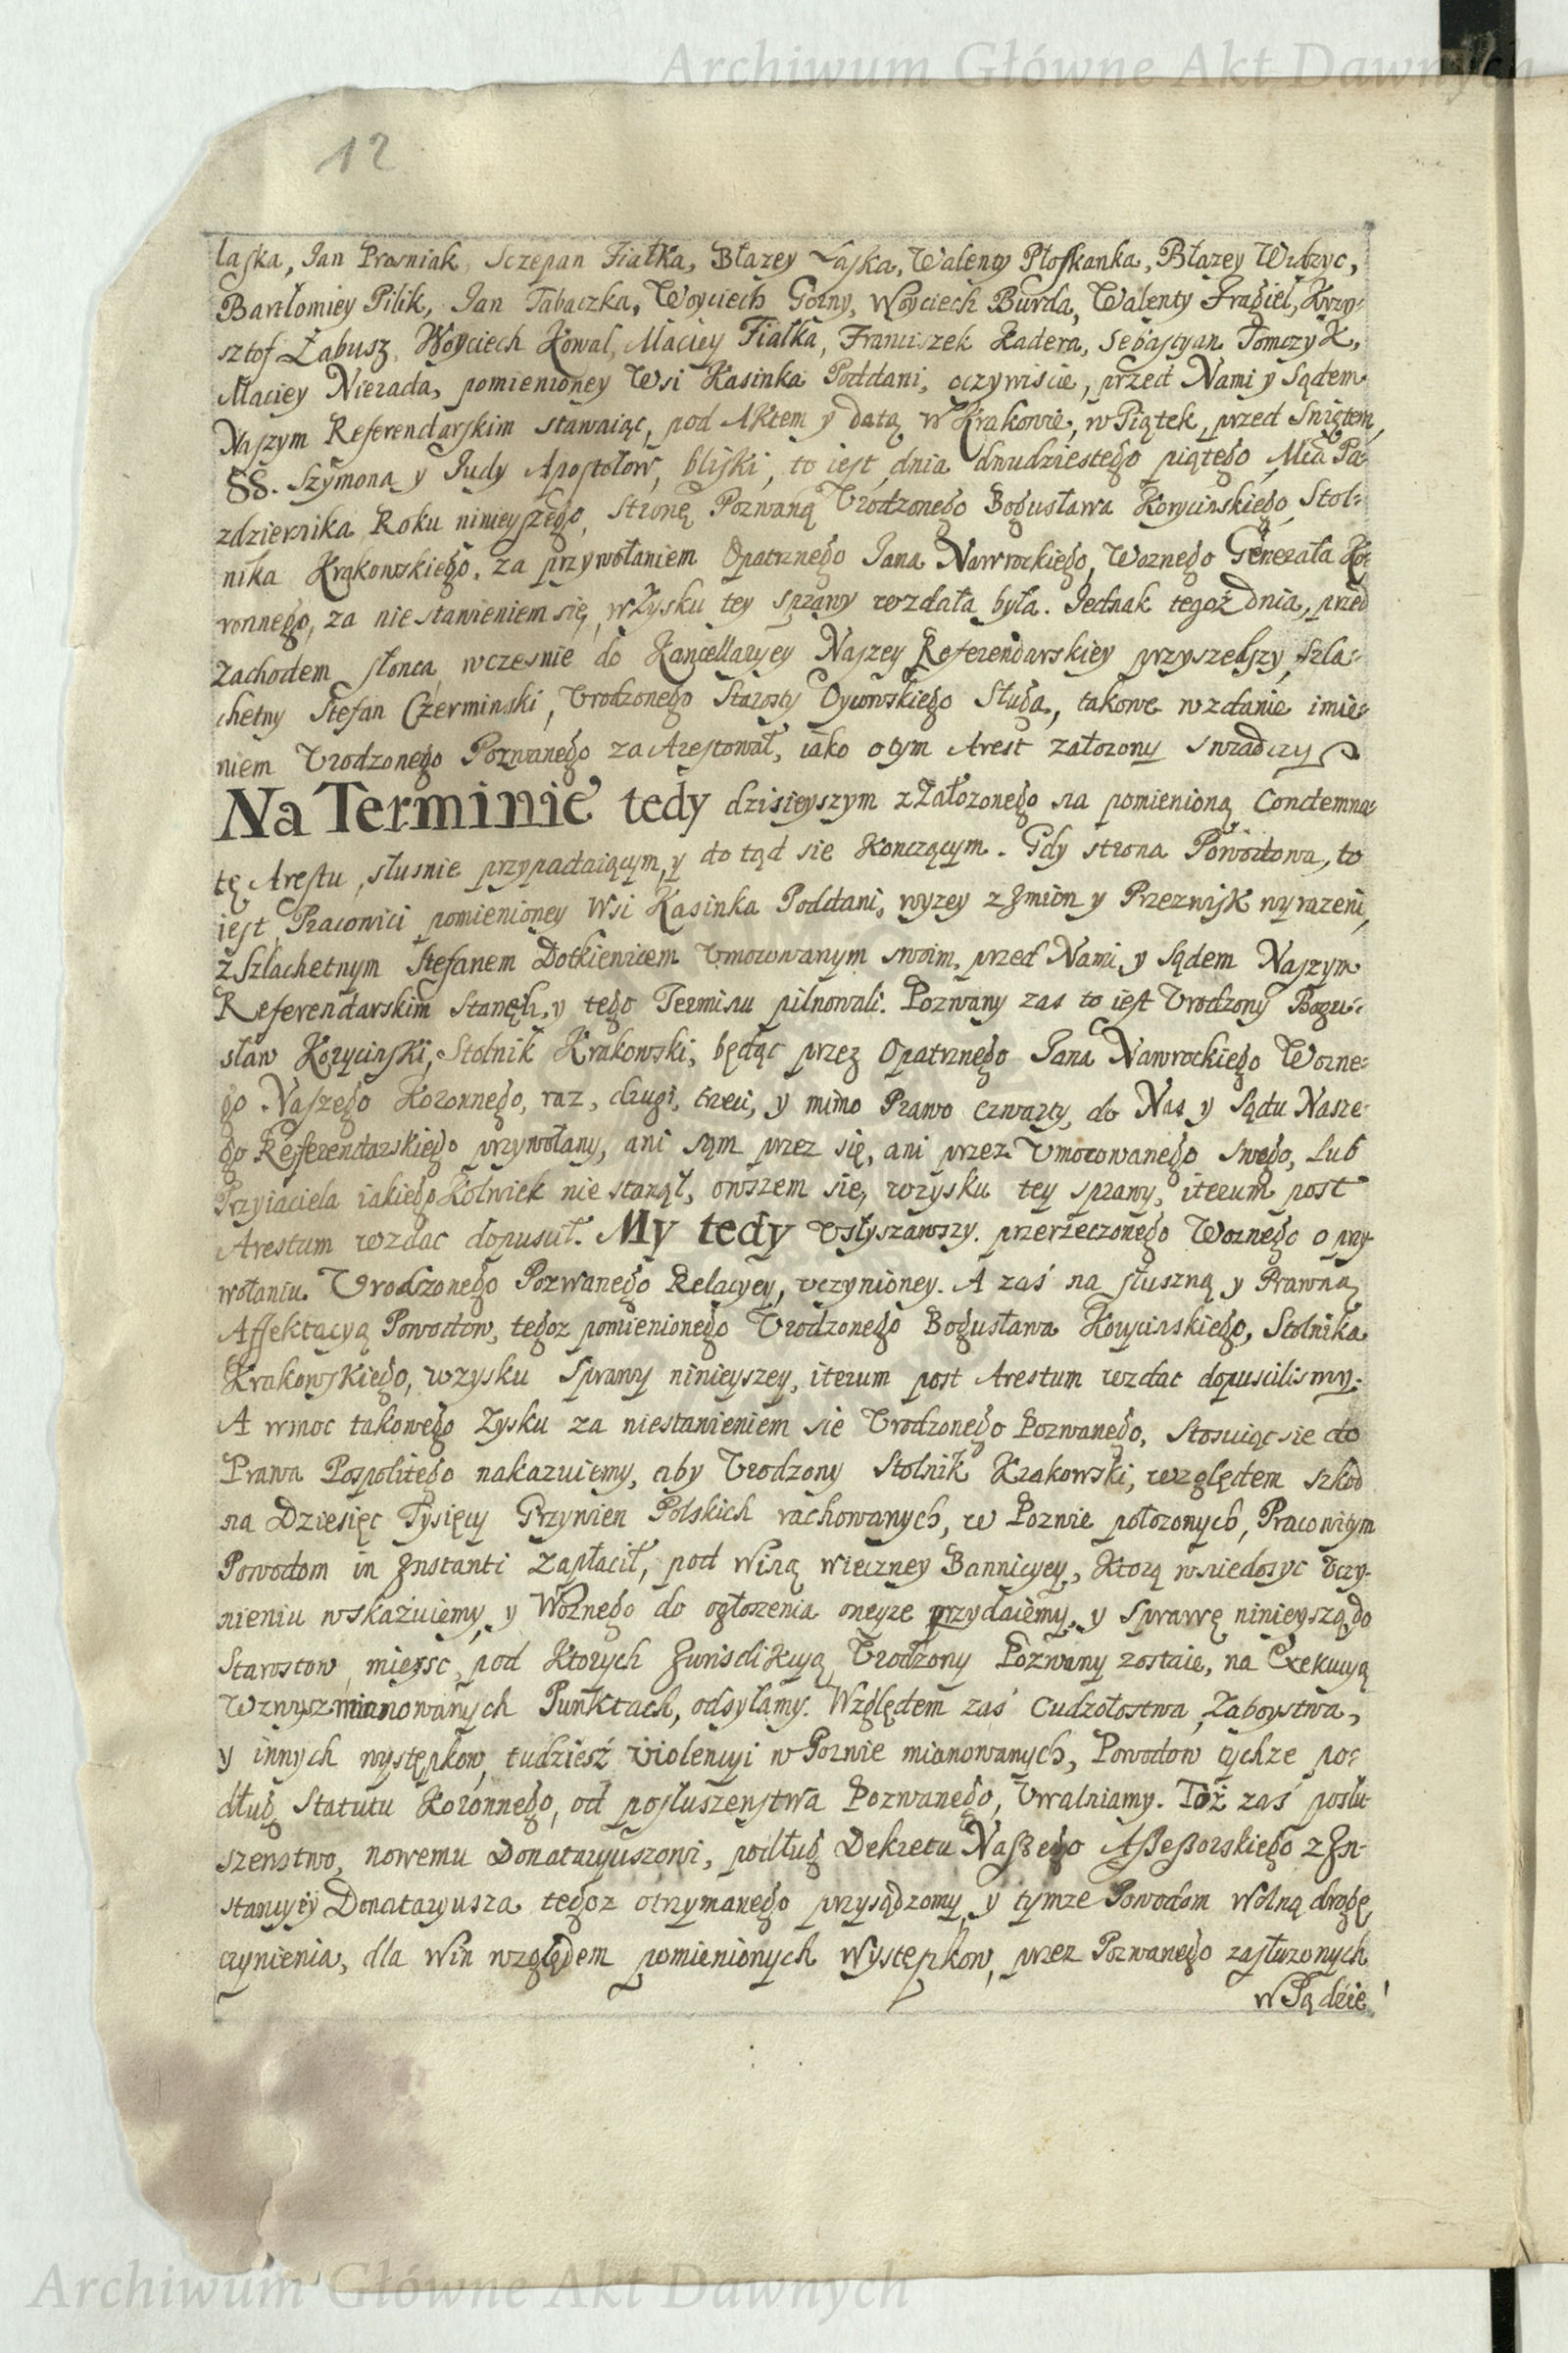 Archiwum Główne Akt Dawnych
12
laska, Jan Prasniak, Sczepan Fiałka, Błazey Łaska, Walenty Płoskanka, Błazey Widzyc,
Bartłomiey Pilik, Jan Tabaczka, Woyciech Gorny, Woyciech Burda, Walenty Fragiel, Krzy-
sztof Łabusz, Woyciech Kowal, Maciey Fiałka, Franciszek Kadera, Sebastyan Tomczyk,
Maciey Nierada, pomienioney Wsi Kasinka Poddani, oczywiscie, przed Nami y Sądem
Naszym Referendarskim stawaiąc, pod Aktem y datą w Krakowie, w Piątek, przed Swiętem,
SS. Szymona y Judy Apostołow, bliski, to iest, dnia dwudziestego piątego Mca Pa-
zdziernika Roku ninieyszego, Stronę Pozwaną Urodzonego Bogusława Korycinskiego, Stol-
nika Krakowskiego, za przywołaniem Opatrznego Jana Nawrockiego, Woznego Generała Ko-
ronnego, za nie stawieniem się, w Zysku tey sprawy wzdała była. Jednak tegoż dnia, przed
Zachodem słonca wczesnie do Kancellaryey Naszey Referendarskiey przyszedszy, szla-
chetny Stefan Czerminski, Urodzonego Starosty Oycowskiego Sługa, takowe wzdanie imie-
niem Urodzonego Pozwanego za Arestował, iako o tym Arest załozony swiadczy
Na Terminie tedy dzisieyszym z Załozonego na pomienioną Condemna-
tę Arestu, słusnie przypadaiącym, y do tąd sie konczącym. Gdy strona Powodowa, to
iest Pracowici pomienioney Wsi Kasinka Poddani, wyzey z Jmion y Przezwisk wyrazeni,
z Szlachetnym Stefanem Dotkiewicem Umocowanym swoim, przed Nami y Sądem Naszym
Referendarskim Stanęli, y tego Terminu pilnowali. Pozwany zas to iest Urodzony Bogu-
sław Korycinski, Stolnik Krakowski, będąc przez Opatrznego Jana Nawrockiego Wozne-
go Naszego Koronnego, raz, drugi, trzeci, y mimo Prawo czwarty, do Nas y Sądu Nasze-
go Referendarskiego przywołany, ani sąm przez się, ani przez Umocowanego swego, lub
Przyiaciela iakiego Kolwiek nie stanął, owszem sie, wzysku tey sprawy, iterum post
Arestum wzdac dopuscił. My tedy Usłyszawszy przerzeczonego Woznego o przy-
wołaniu Urodzonego Pozwanego Relacyey, uczynioney. A zaś na słuszną y Prawną
Affektacyą Powodow, tegoz pomienionego Urodzonego Bogusława Korycinskiego, Stolnika
Krakowskiego, wzysku Sprawy ninieyszey, iterum post Arestum wzdac dopuscilismy.
A w moc takowego Zysku za niestanieniem sie Urodzonego Pozwanego, Stosuiąc sie do
Prawa Pospolitego nakazuiemy, aby Urodzony Stolnik Krakowski, względem szkod
na Dziesięc Tysięcy Grzywien Polskich rachowanych, w Pozwie połozonych, Pracowitym
Powodom in Instanti Zapłacił, pod Winą wieczney Bannicyey, Ktorą w niedosyc Uczy-
nieniu wskazuiemy, y Woznego do ogłoszenia oneyze przydaiemy, y Sprawę ninieyszą do
Starostow mieysc, pod Ktorych Jurisdikcyą Urodzony Pozwany zostaie, na Exekucyą
Wzwyszmianowanych Punktach, odsyłamy. Względem zaś Cudzołostwa, Zaboystwa,
y innych występkow, tudziesz violencyi w Pozwie mianowanych, Powodow tychze po-
dług Statutu Koronnego, od posłuszenstwa Pozwanego, Uwalniamy. Toż zaś posłu-
szenstwo, nowemu Donataryuszowi, podług Dekretu Naszego Assessorskiego z In-
stancyey Donataryusza tegoz otrzymanego przysądzomy, y tymze Powodom Wolną drogę
czynienia, dla Win względem pomienionych Występkow, przez Pozwanego zasłuzonych
w Sądzie
Archiwum Główne Akt Dawnych